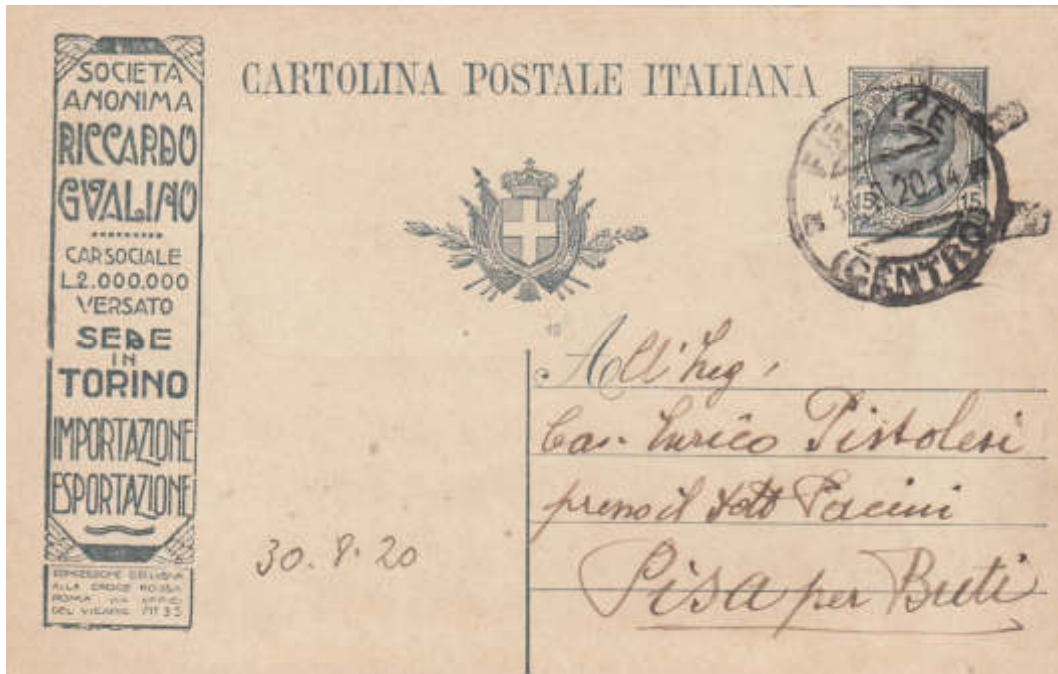 SOCIETA
ANONIMA
RICCARDO
GVALINO
CAP.SOCIALE
L.2.000.000
VERSATO
SEDE
IN
TORINO
IMPORTAZIONE
ESPORTAZIONE
CONCESSIONE ESCLUSIVA
ALLA CROCE ROSSA
ROMA VIA UFFICI
DEL VICARIO Nº 35
CARTOLINA POSTALE ITALIANA
15 15
FIRENZE
20.14
(CENTRO)
All'Ing.
Cav. Enrico Pistolesi
presso il Dott Pacini
Pisa per Buti
30.8.20